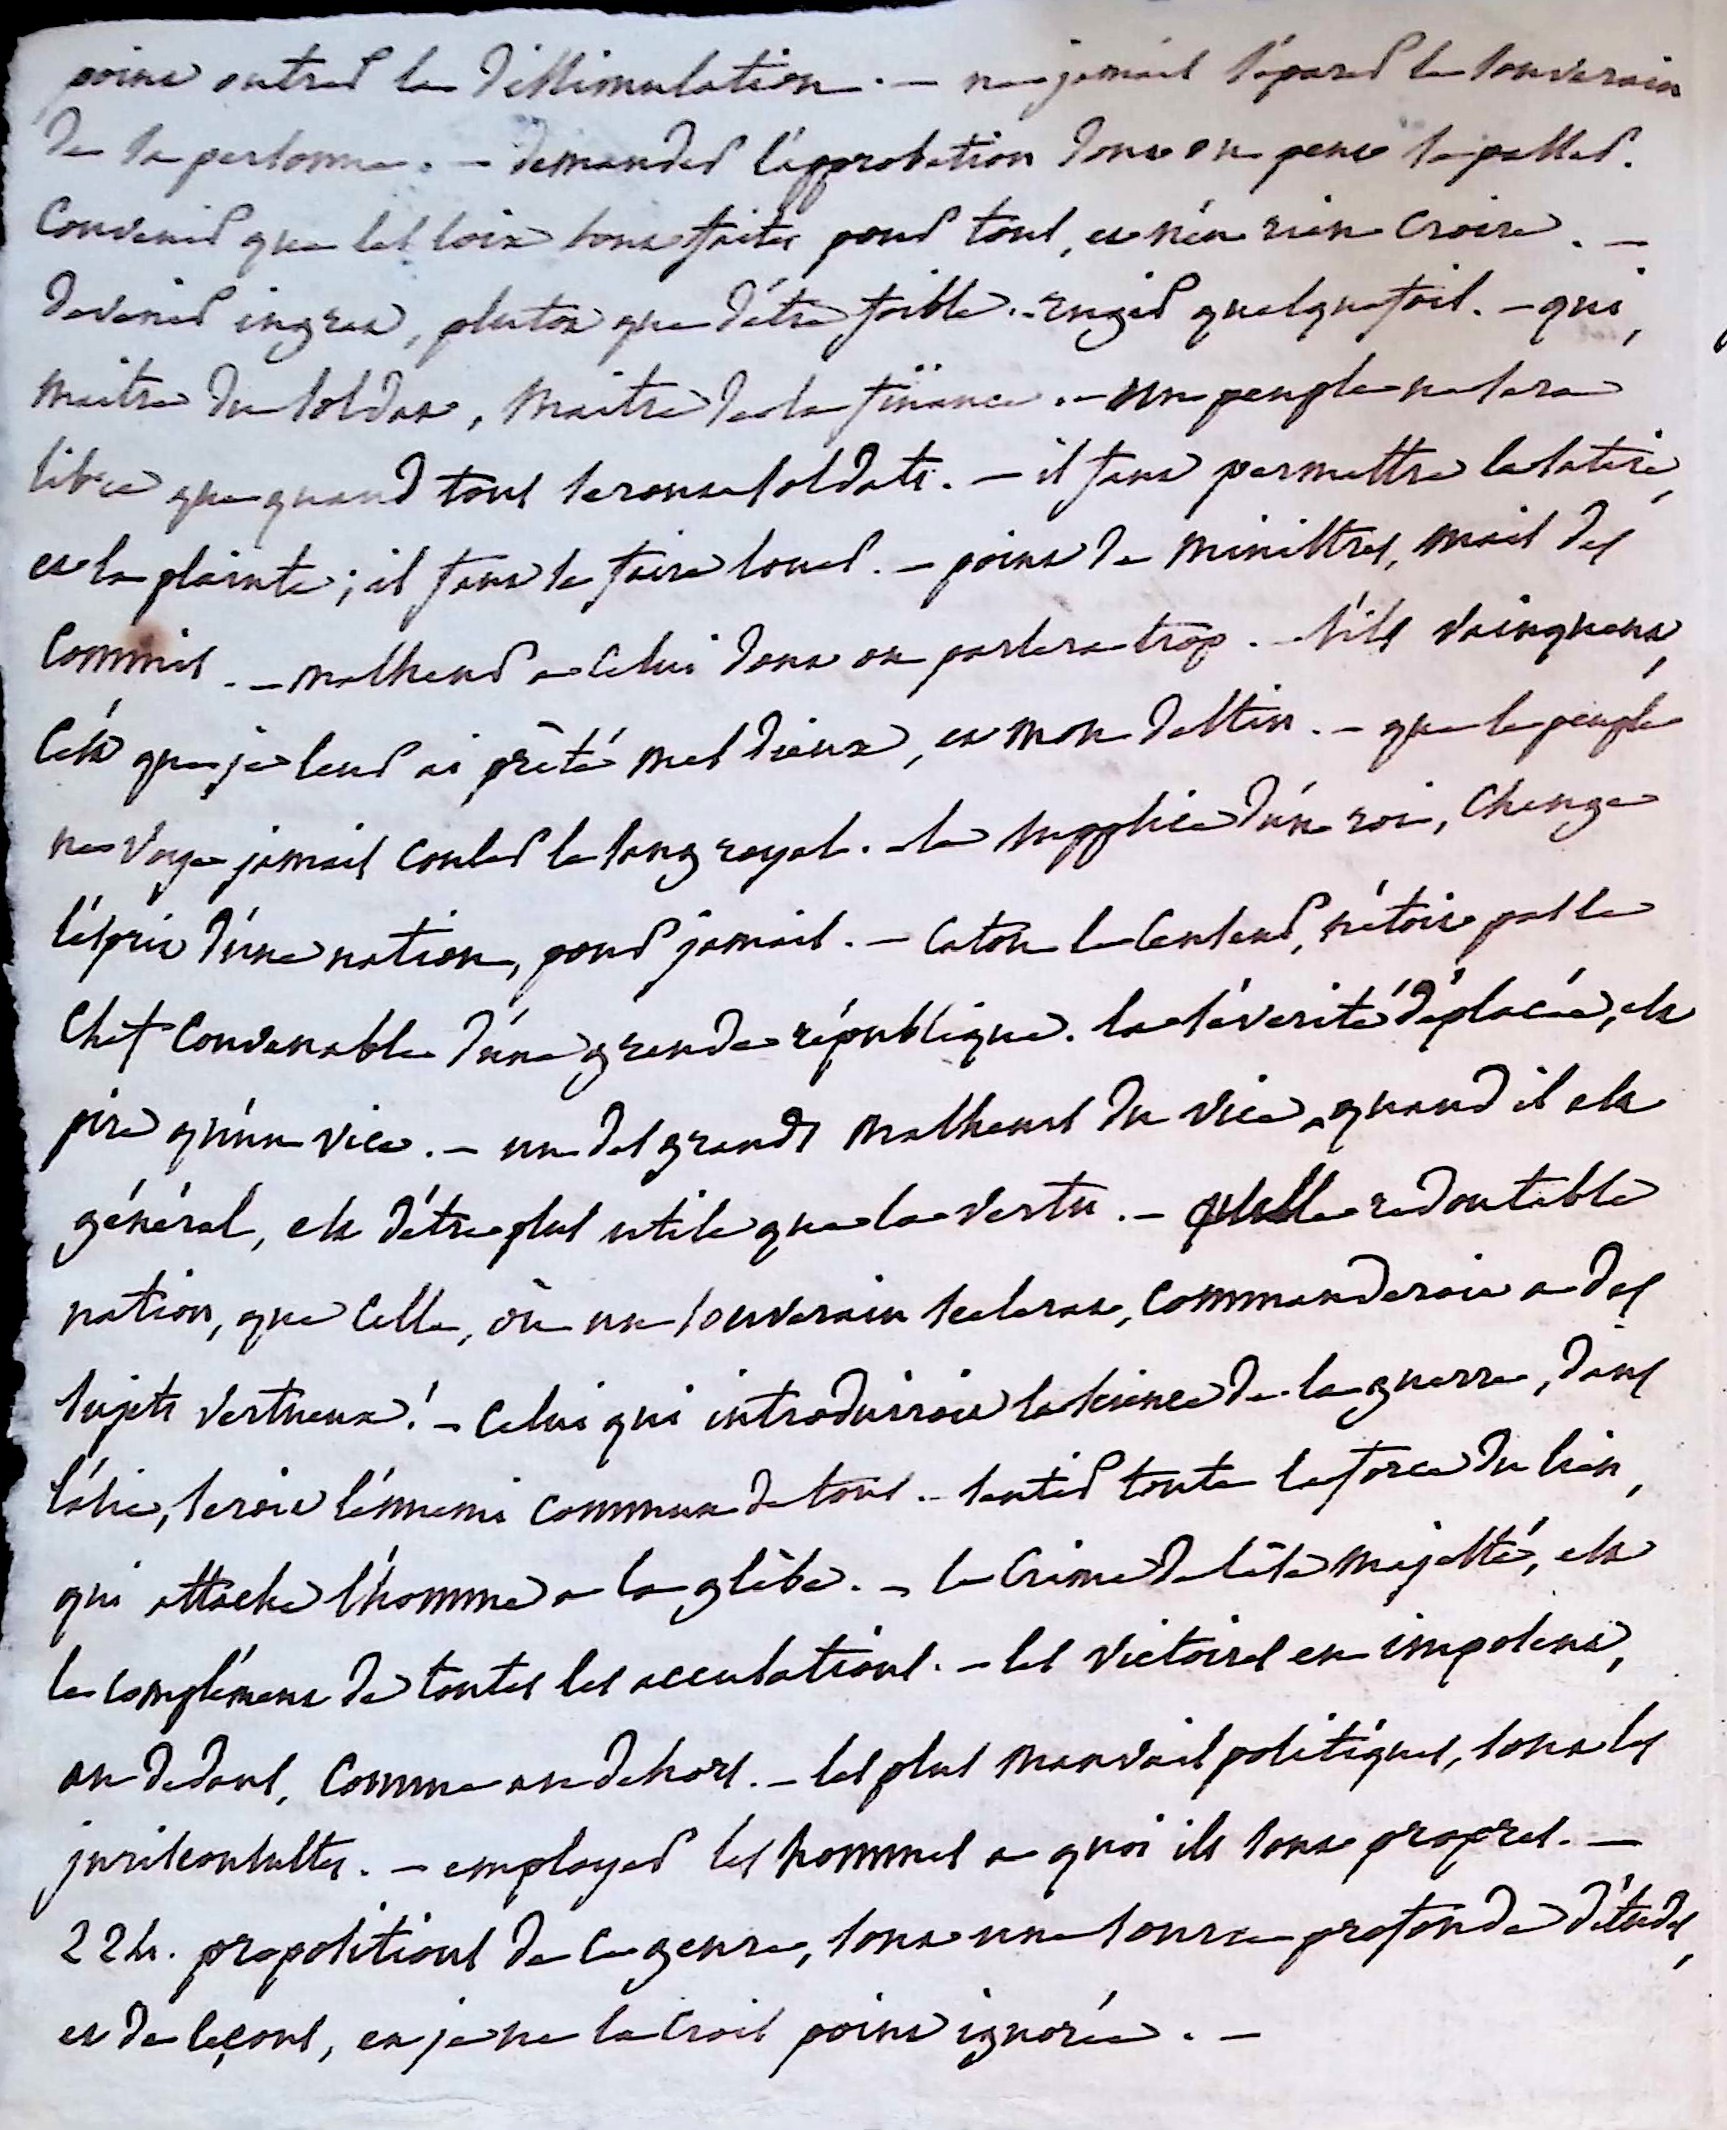 point outrer la dissimulation. – ne jamais séparer le souverain
de sa personne. – demander l'approbation dont on peut se passer.
Convenir que les loix sont faites pour tous, et n'én rien croire. –
devenir ingrat, plutot que d'étre foible. – rugir quelquefois. – qui,
maitre du soldat, maitre de la finance. – un peuple ne sera
libre que quand tous seront soldats. – il faut permettre la satire,
et la plainte; il faut se faire louer. – point de ministres, mais des
Commis. – malheur a Celui dont on parlera trop. – s'ils vainquent,
C'est que je leur ai prêté mes dieux, et mon destin. – que le peuple
ne voye jamais couler le sang royal. – le supplice d'ún roi, Change
l'ésprit d'úne nation, pour jamais. – Caton le Censeur, n'étoit pas le
Chef Convenable d'úne grande république. la séverité déplacée, est
pire qu'ún vice. – un des grands malheurs du vice, quand il est
général, est d'étre plus utile que la vertu. – quelle redoutable
nation, que Celle, où un souverain scelerat, commanderoit a des
sujets vertueux! – Celui qui introduiroit la science de la guerre, dans
l'ásie, seroit l'énnemi commun de tous. – sentir toute la force du lien,
qui attache l'homme a la glèbe. – le Crime de lèse majesté, est
le complément de toutes les accusations. – les victoires en imposent,
au dedans, Comme au dehors. – les plus mauvais politiques, sont les
jurisconsultes. – employer les hommes a quoi ils sont propres. –
propositions de ce genre, sont une source profonde d'études,
et de leçons, et je ne la Crois point ignorée. –